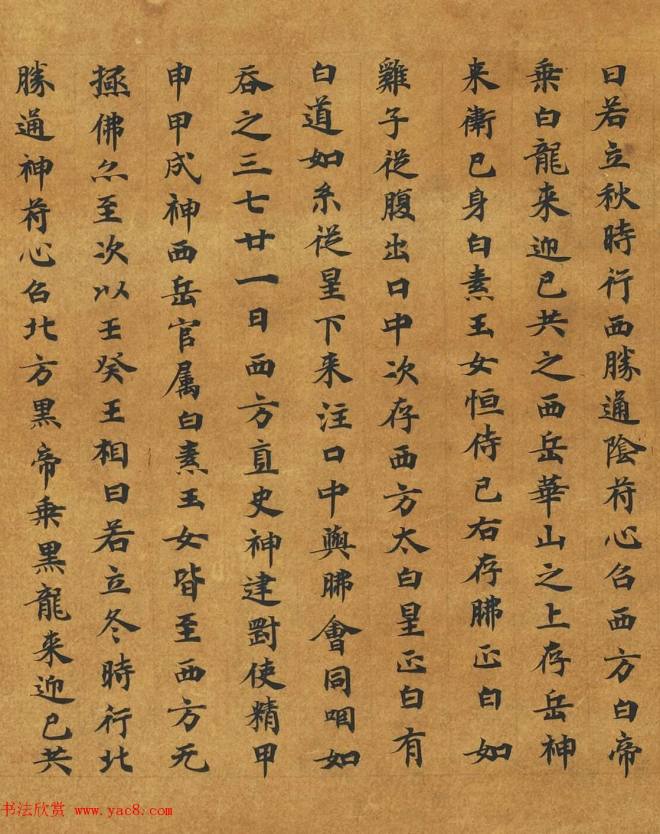 日若立秋時行西勝通陰苻心召西方白帝
乗白龍来迎已共之西岳華山之上存岳神
来衛已身白素玉女恒侍已右存肺正白如
雞子從腹出口中次存西方太白星正白有
白道如糸從星下来注口中與肺會同咽如
吞之三七廿一日西方直史神逮對使精甲
申甲戌神西岳官属白素玉女皆至西方无
拯佛尒至次以壬癸王相日若立冬時行北
勝通神苻心召北方黒帝乗黒龍来迎已共
书法欣赏 www.yac8.com